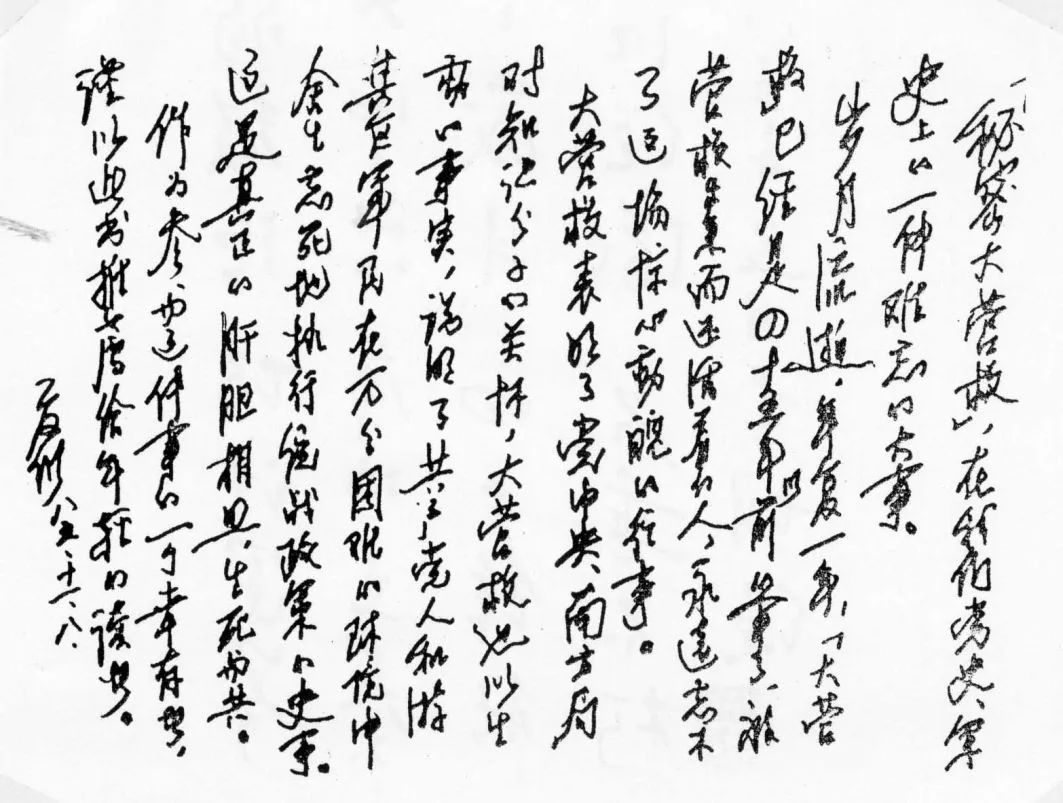 「秘密大营救」,在我们党史、军
史上的一件难忘的大事。
岁月流逝,年复一年,「大营
救已经是四十年以前的事了,被
营救出来而还活着的人,永远忘不
了这场惊心动魄的往事。
大营救表明了党中央、南方局
对知识分子的关怀,大营救也以生
动的事实,说明了共产党人和游
击区军民在万分困难的环境中
舍生忘死地执行统战政策的史事。
这是真正的肝胆相照,生死与共。
作为参与这件事的一个幸存者,
谨以此书推荐给年轻的读者。
夏衍 八五、十一、八、